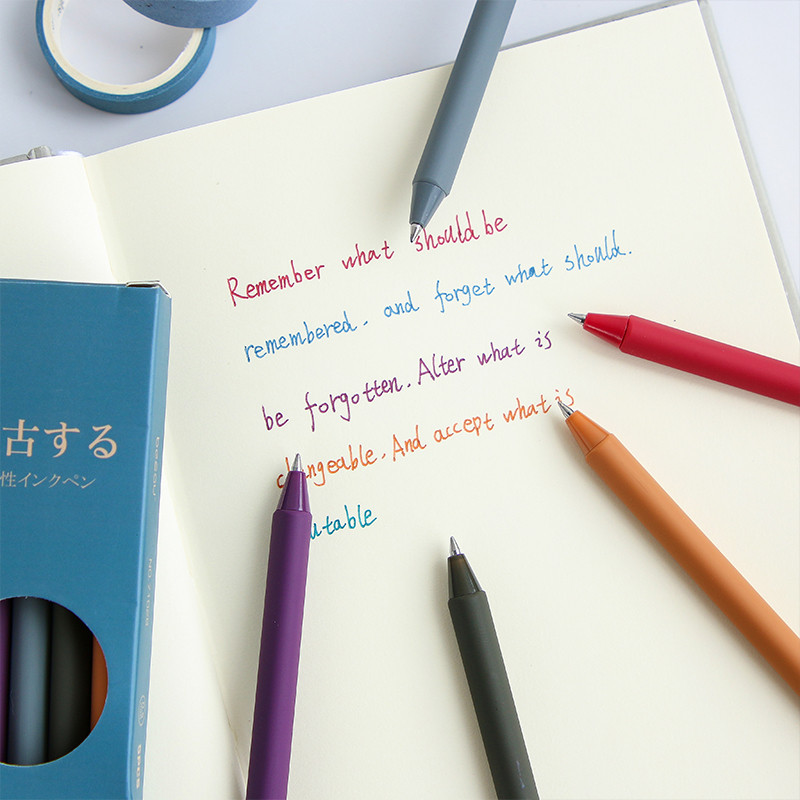 Remember what should be
remembered. and forget what should.
be forgotten. Alter what is
changeable. And accept what is
utable
古する
性インクペン